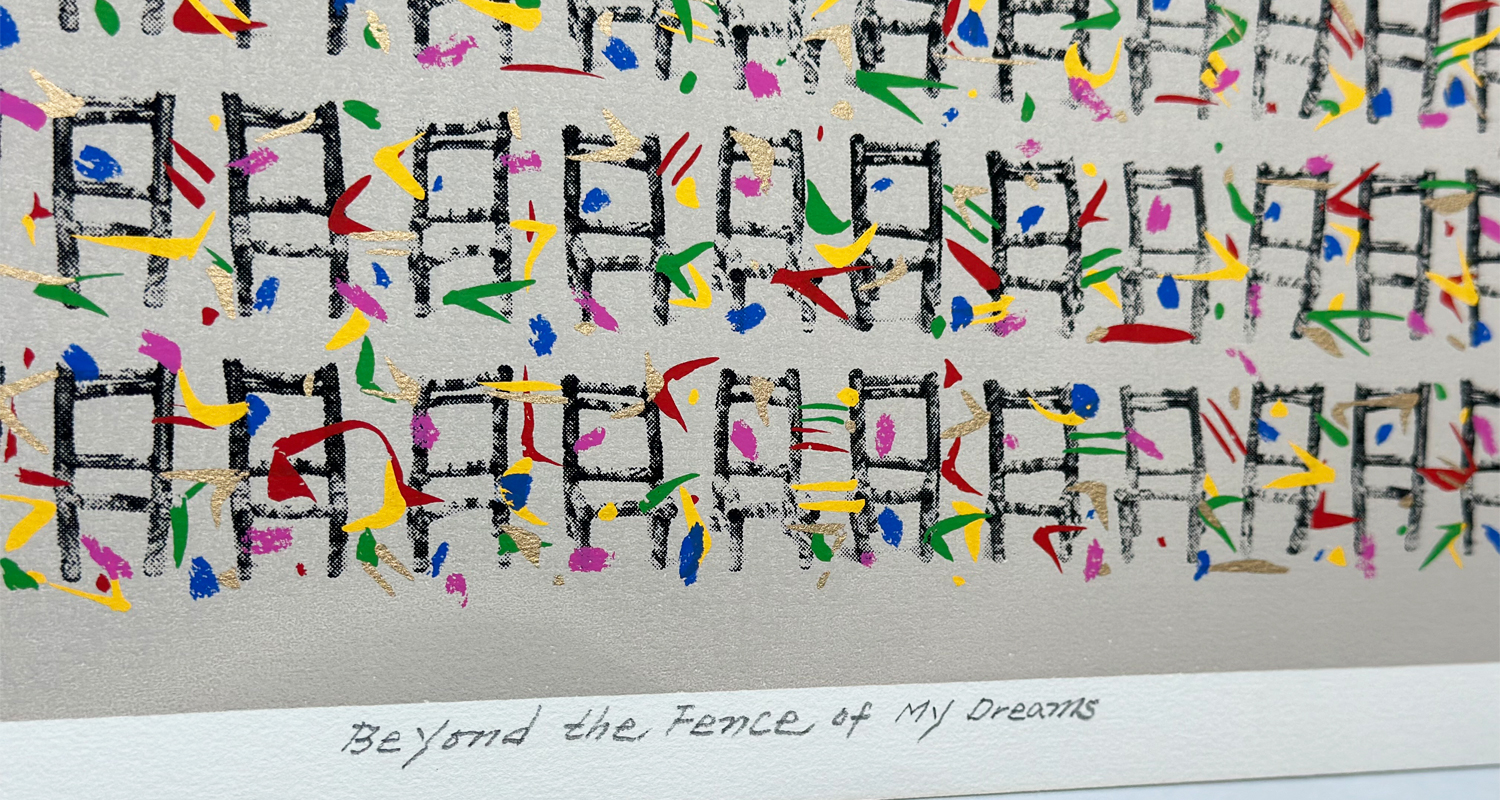 Beyond the Fence of My Dreams